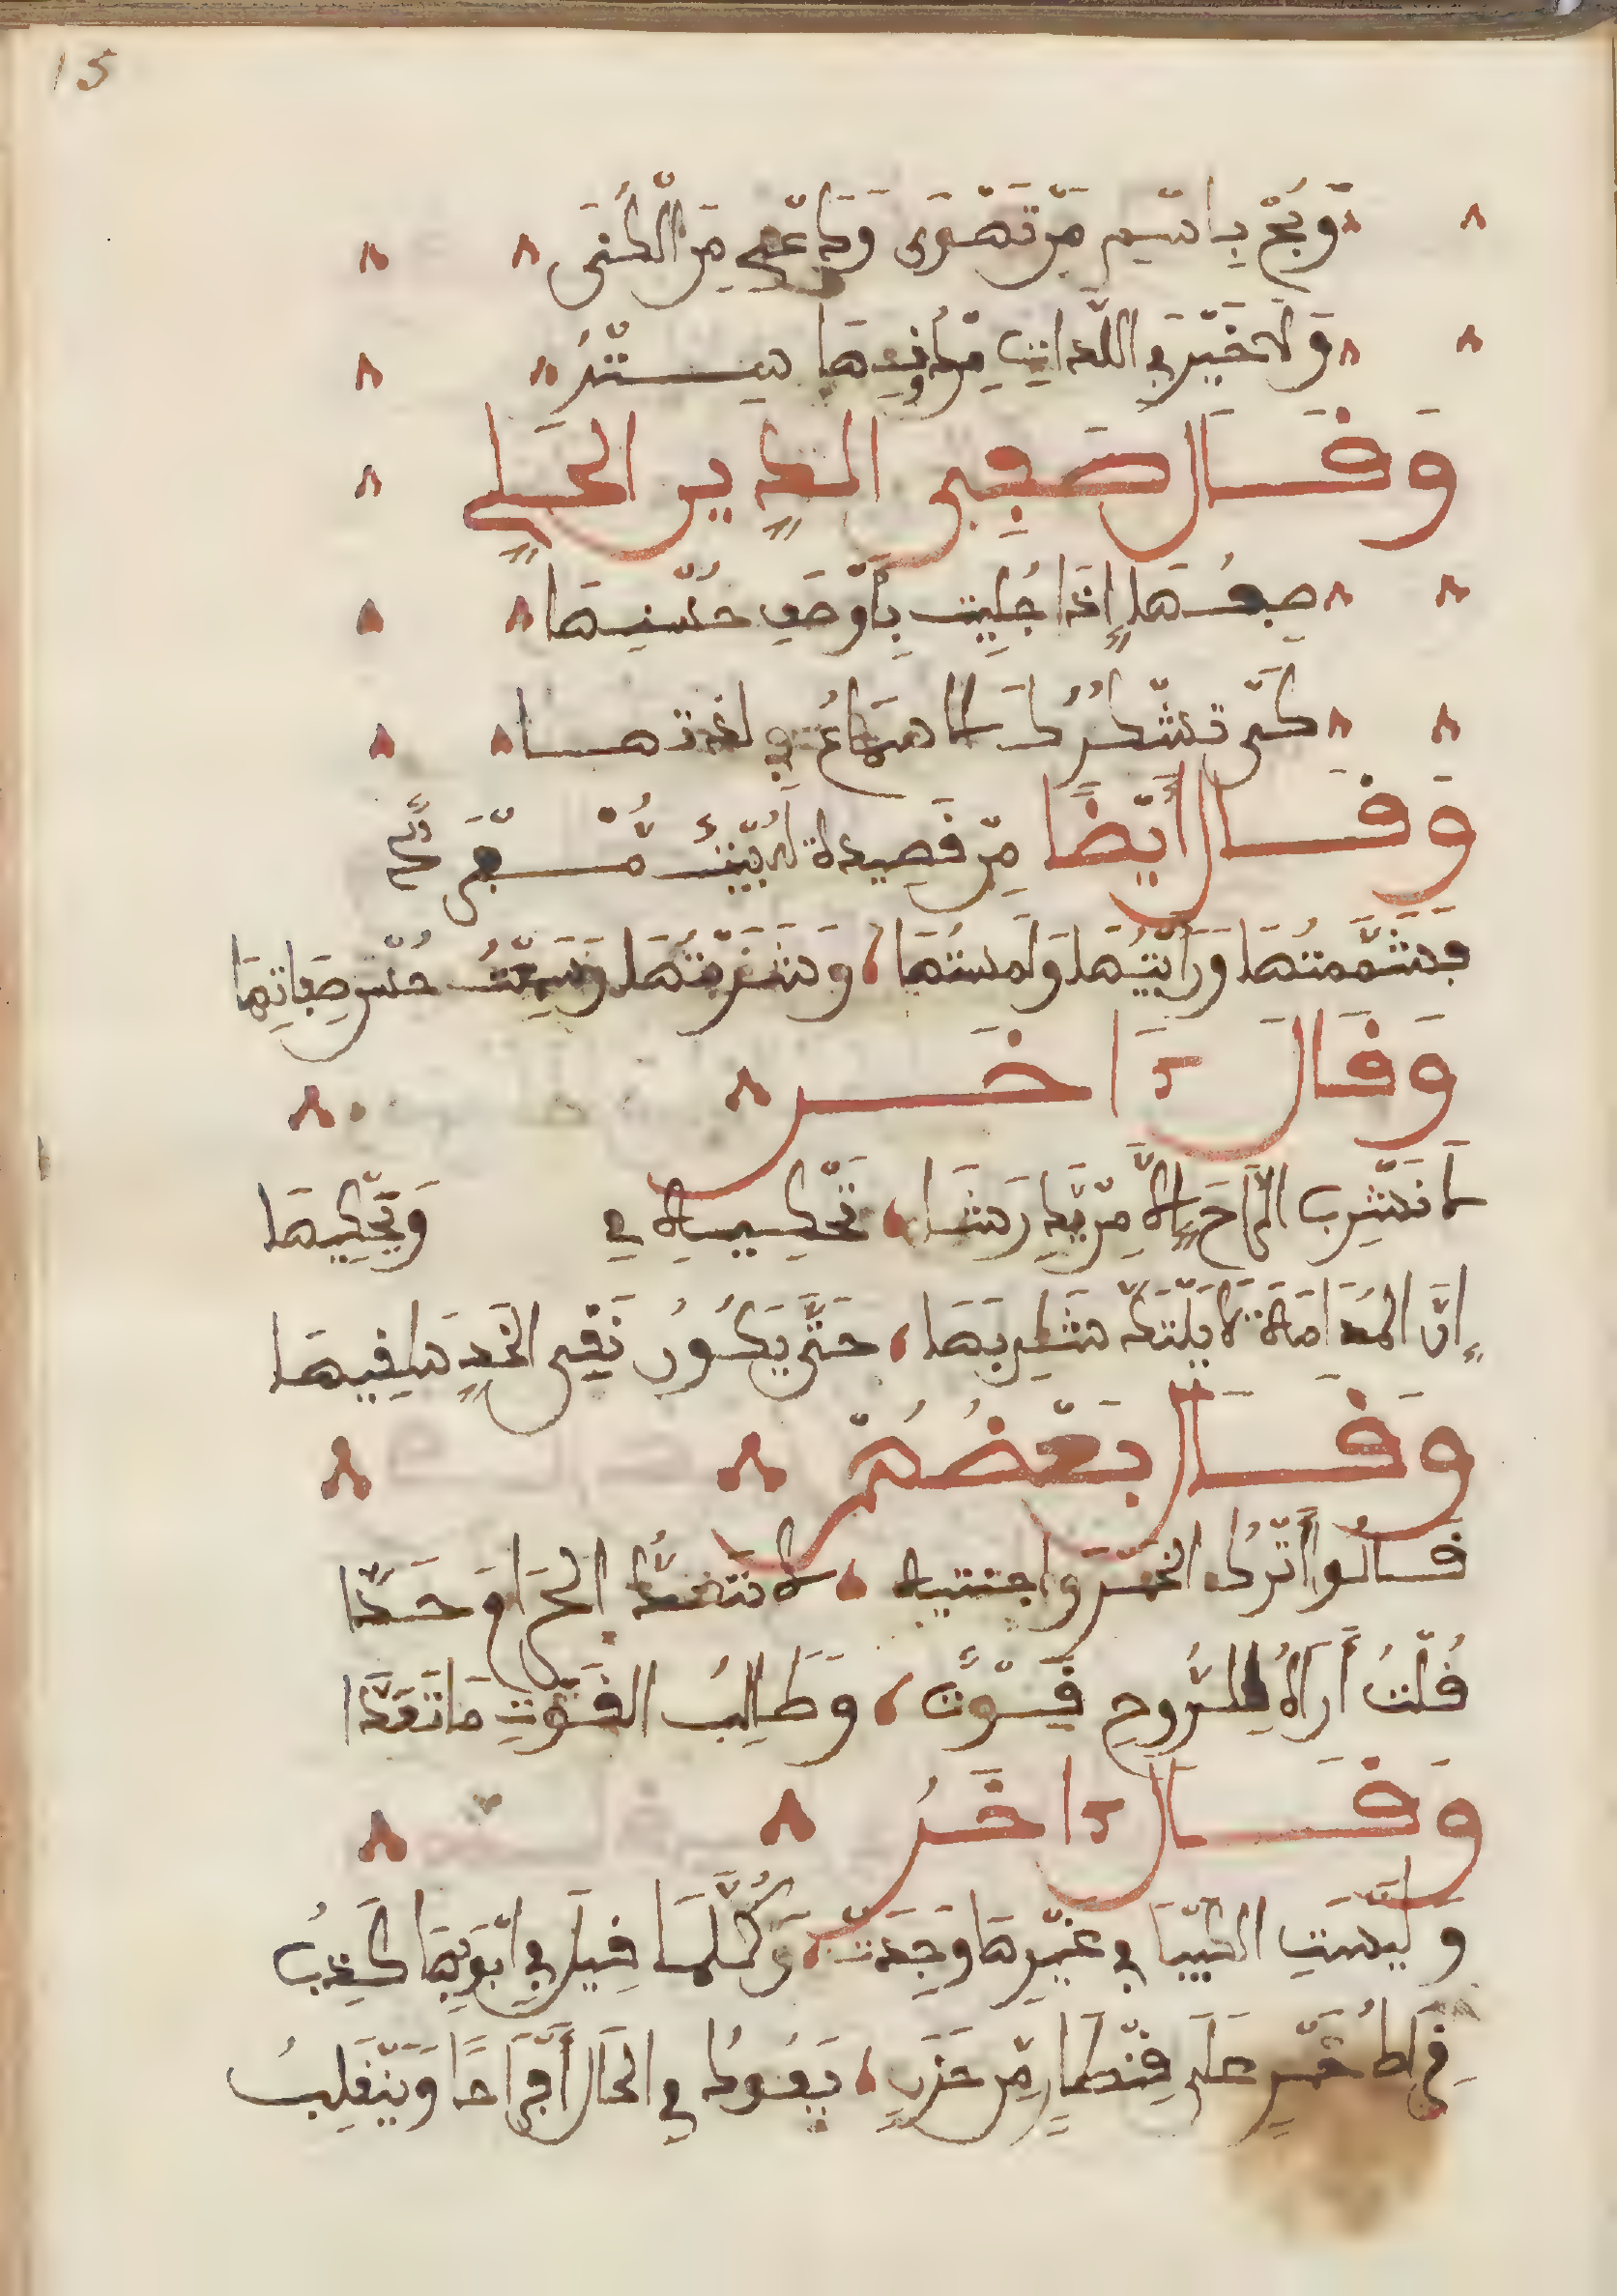 15
وَبُحْ بِاسْمِ مَنْ تَهْوَى وَدَعْنِي مِنَ الْكُنَى
وَلَا خَيْرَ فِي اللَّذَاتِ مِنْ دُونِهَا سِتْرُ
وَقَالَ صَفِيّ الدِّينِ الحِلِّي
صِفْهَا إِذَا جُلِيَتْ بِأَوْصَفِ حُسْنِهَا
كَيْ تَشْرَكَ الْأَسْمَاعُ فِي لَذَّتِهَا
وَقَالَ أَيْضًا مِنْ قَصِيدَةٍ
فَشَمَمْتُهَا وَرَأَيْتُهَا وَلَمَسْتُهَا، وَشَرِبْتُهَا وَسَمِعْتُ حُسْنَ صِفَاتِهَا
وَقَالَ ءَاخَر
لَا نَشْرِبِ الرَّاحَ إِلَّا مِنْ يَدِ رَشَا، تَحْكِيهِ فِي وَيَحْكِيهَا
إِنَّ المُدَامَةَ لَا يَلْتَذّ شَارِبهَا، حَتَّى يَكُونَ نَقِيَّ الخَدِّ سَاقِيهَا
وَقَالَ بَعْضُهُمْ
قَالُوا أَتْرُك الخَمْرَ وَاجْتَنِبْهُ، لَا تَتَعَدَّ الحَرَامَ حَدَّا
قُلْتُ أَرَاهُ لِلرُّوحِ قُوْتٌ، وَطَالِبُ القُوْتِ مَا تَعَدَّا
وَقَالَ ءاخَرُ
وَلَيْسَتِ الكِيمْيَا فِي غَيْرِهَا وَجِدَتْ، وَكُلَّمَا قِيلَ فِي أَبْوَابِهَا كَذِبُ
قِيرَاطُ خَمْرٍ عَلَى قِنْطَارٍ مِنْ حَزَنٍ، يَعُودُ فِي الحَالِ أَفْرَاحًا وَيَنْقَلِبُ